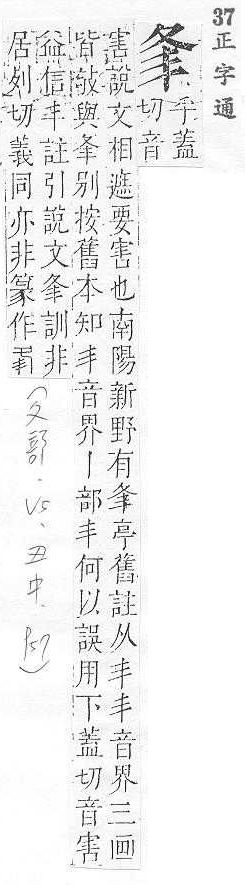 37 正字通
𡕖 乎蓋切音
害說文相遮要害也南陽新野有𡕖亭舊註从丯丯音界三画
皆敧與夆別按舊本知丯音界丨部丯何以誤用下蓋切音害
益信丯註引說文𡕖訓非
居列切義同亦非篆作
(夂部.VS.丑中.P57)